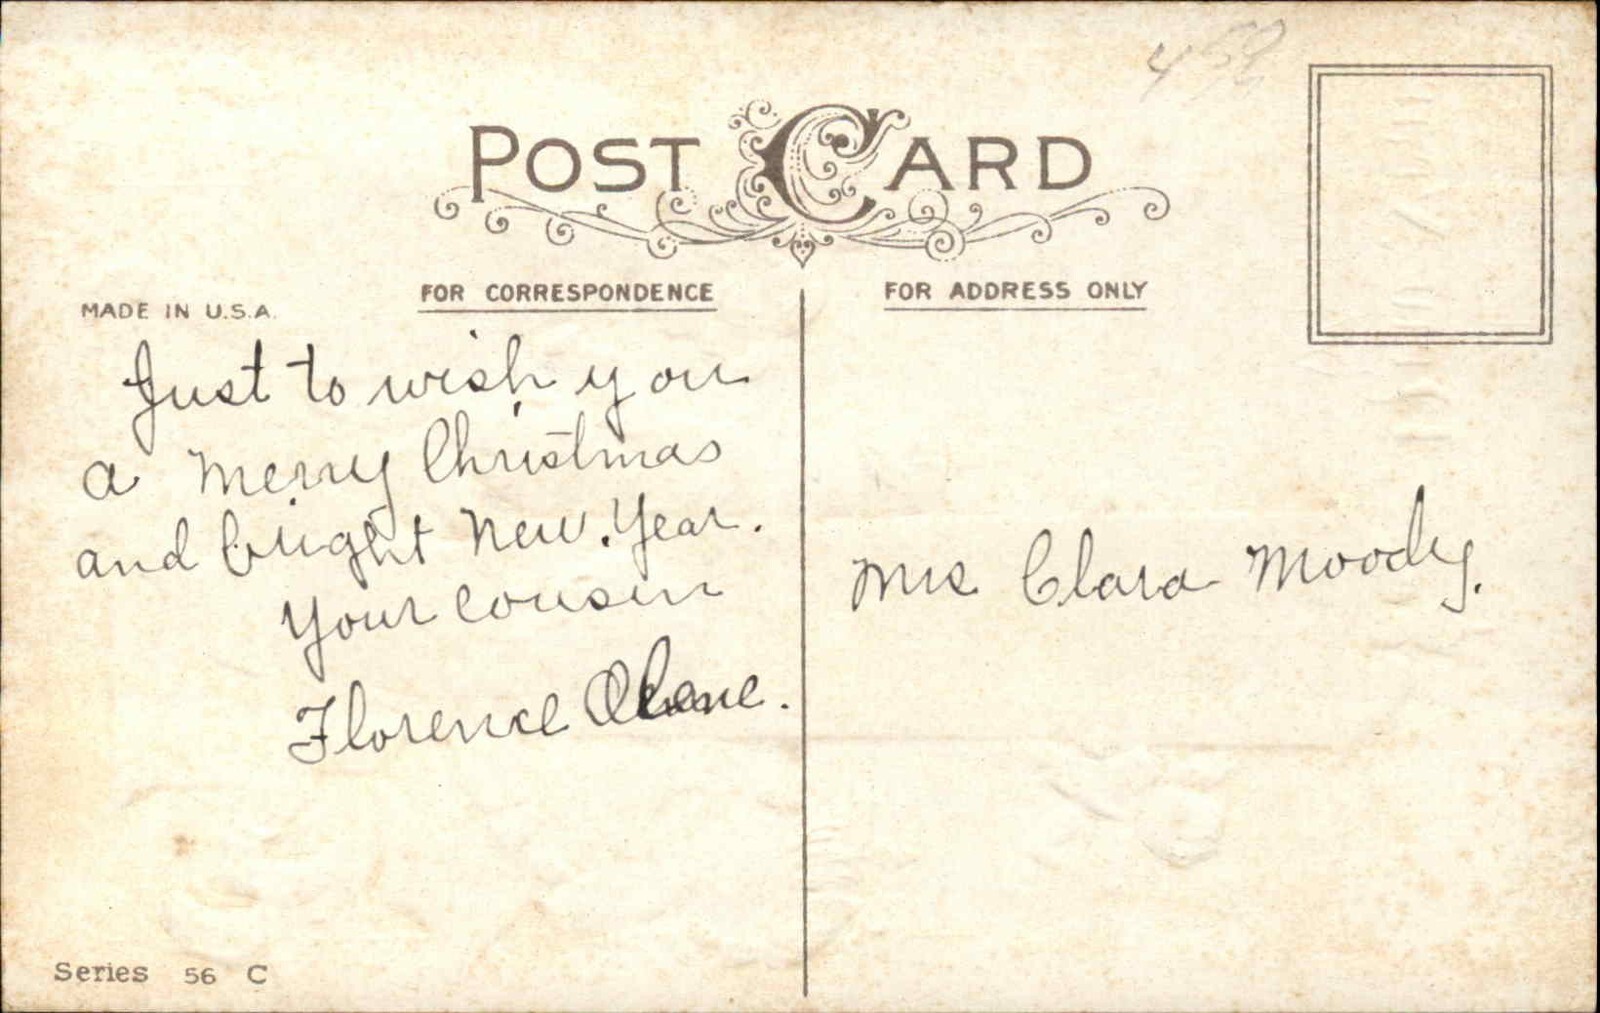 POST CARD
MADE IN U.S.A.
FOR CORRESPONDENCE
FOR ADDRESS ONLY
Just to wish you
a Merry Christmas
and bright New Year.
Your cousin
Florence
Mrs Clara Moody.
Series 56 C